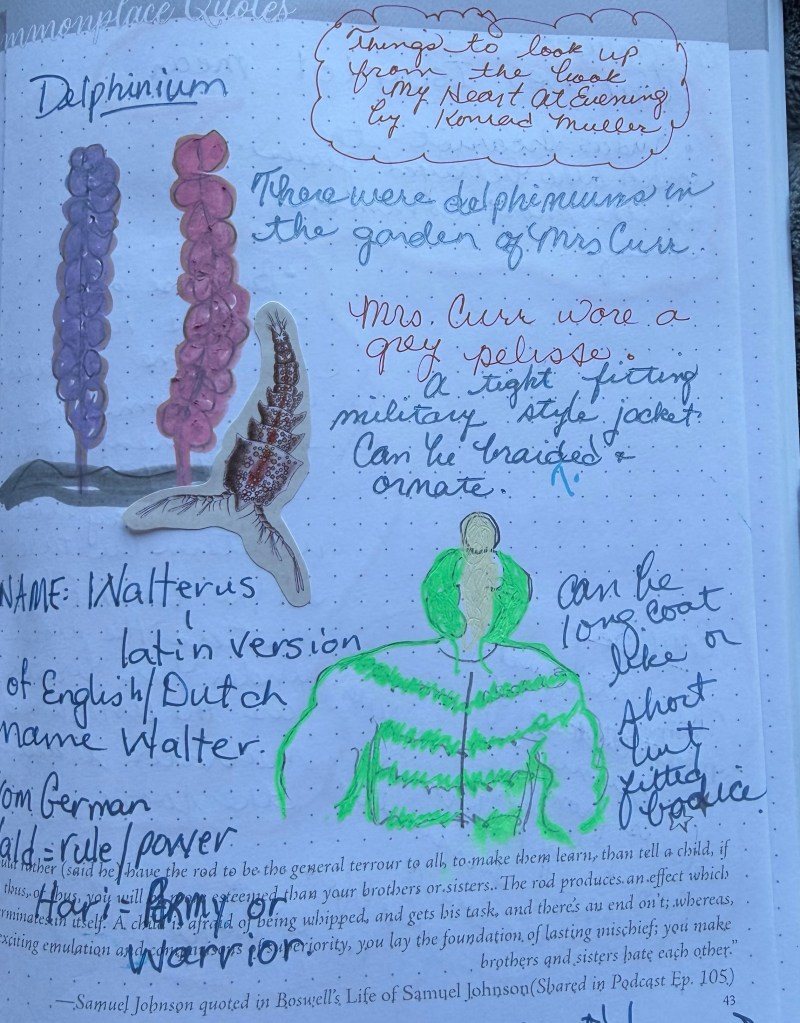 mmonplace Quotes
Things to look up
from the book
My Heart At Evening
by Konrad Muller
Delphinium
There were delphiniums in
the garden of Mrs Curr.
Mrs. Curr wore a
grey pelisse.
A tight fitting
military style jacket.
Can be braided &
ornate.
NAME: Walterus
latin version
of English/Dutch
name Walter.
om German
ald = rule/power
Hari = Army or
Warrior.
can be
long coat
like or
short
but
fitted
bodice
rather (said he) have the rod to be the general terrour to all, to make them learn, than tell a child, if
thus, or thus, you will be more esteemed than your brothers or sisters. The rod produces an effect which
rminates in itself. A child is afraid of being whipped, and gets his task, and there's an end on't; whereas,
exciting emulation and comparisons of superiority, you lay the foundation of lasting mischief; you make
brothers and sisters hate each other."
—Samuel Johnson quoted in Boswell's Life of Samuel Johnson(Shared in Podcast Ep. 105)
43